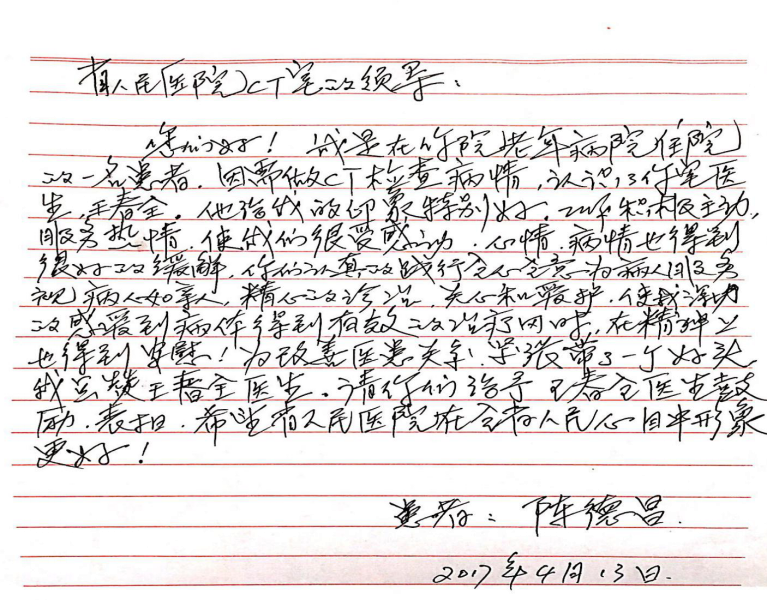 省人民医院CT室的领导：
您们好！我是在你院老年病院住院
的一名患者，因需做CT检查病情，认识了你室医
生，王春全。他给我的印象特别好。工作积极主动，
服务热情，使我们很受感动，心情、病情也得到
很好的缓解，你们认真的践行全心全意为病人服务
视病人如亲人，精心的诊治，关心和爱护，使我深切
的感受到病体得到有效的治疗同时，在精神上
也得到安慰！为改善医患关系，带了一个好头
我点赞王春全医生。请你们给予王春全医生鼓
励、表扬。希望省人民医院在全省人民心目中形象
更好！
患者：陈德昌
2017年4月13日.